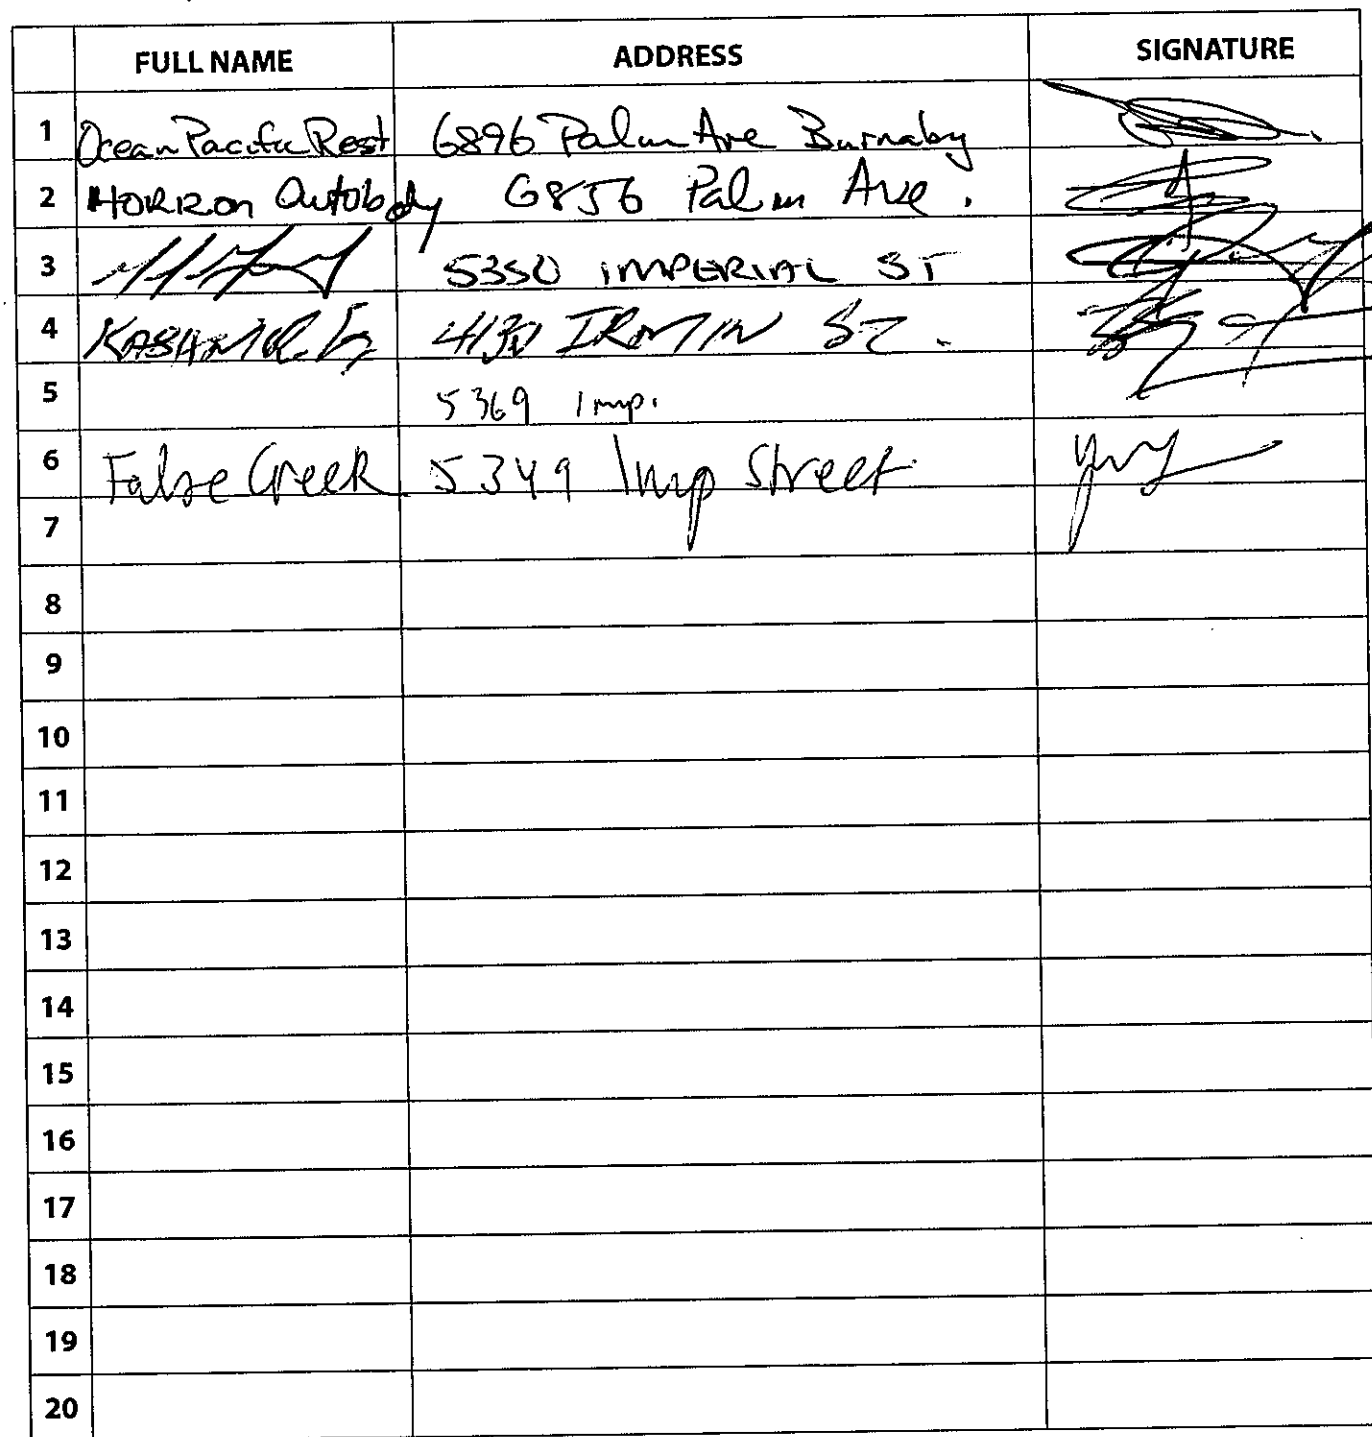 FULL NAME ADDRESS SIGNATURE
1 Ocean Pacific Rest 6896 Palm Ave Burnaby
2 HORIZON Autobody 6856 Palm Ave.
3 5350 IMPERIAL ST
4 4130 IRMIN ST.
5 5369 Imp.
6 False Creek 5349 Imp Street
7
8
9
10
11
12
13
14
15
16
17
18
19
20